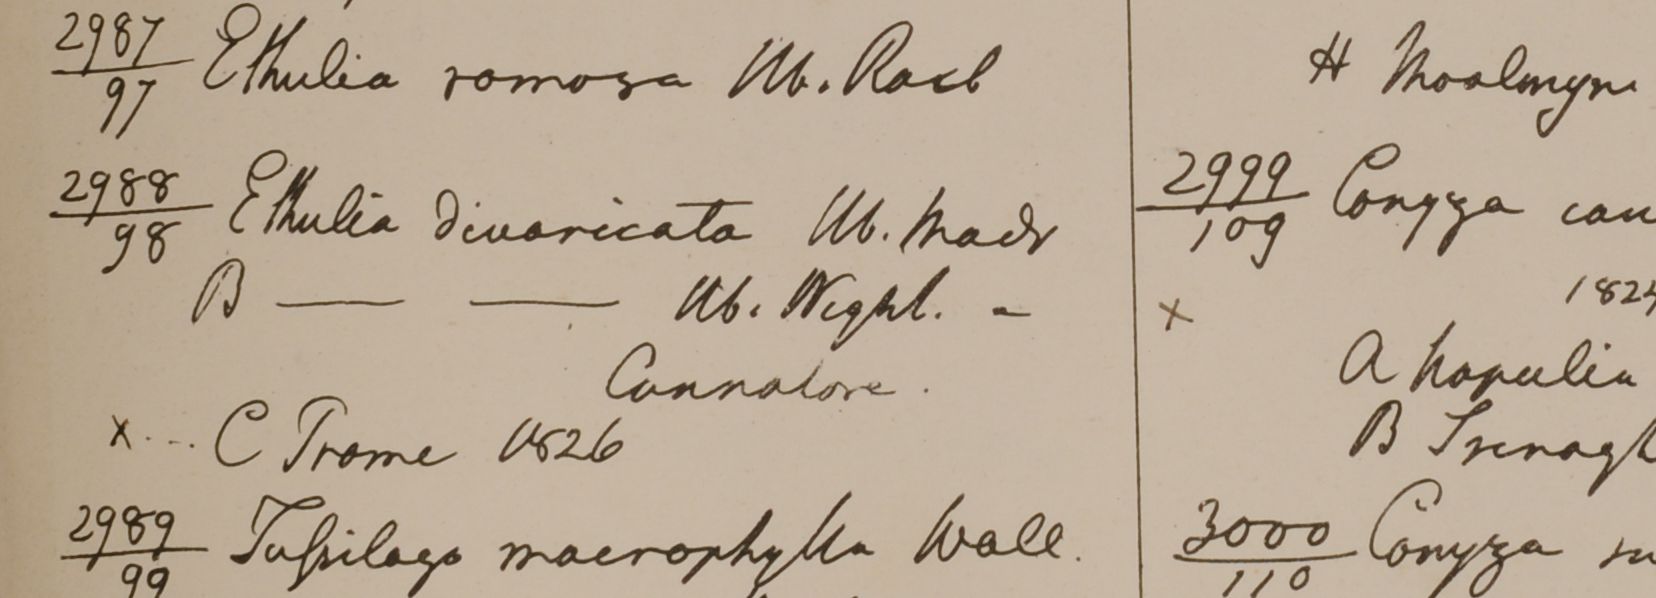 2987
97 Ethulia ramosa Hb. Roxb
2988
98 Ethulia divaricata Hb. Madr
B — — Hb. Wight. -
Cannatore.
x... C Trome 1826
2989
99 Tussilago macrophylla Wall.
H Moalmyne
2999
109 Conyza
x
A Napulia
B
3000
110 Conyza